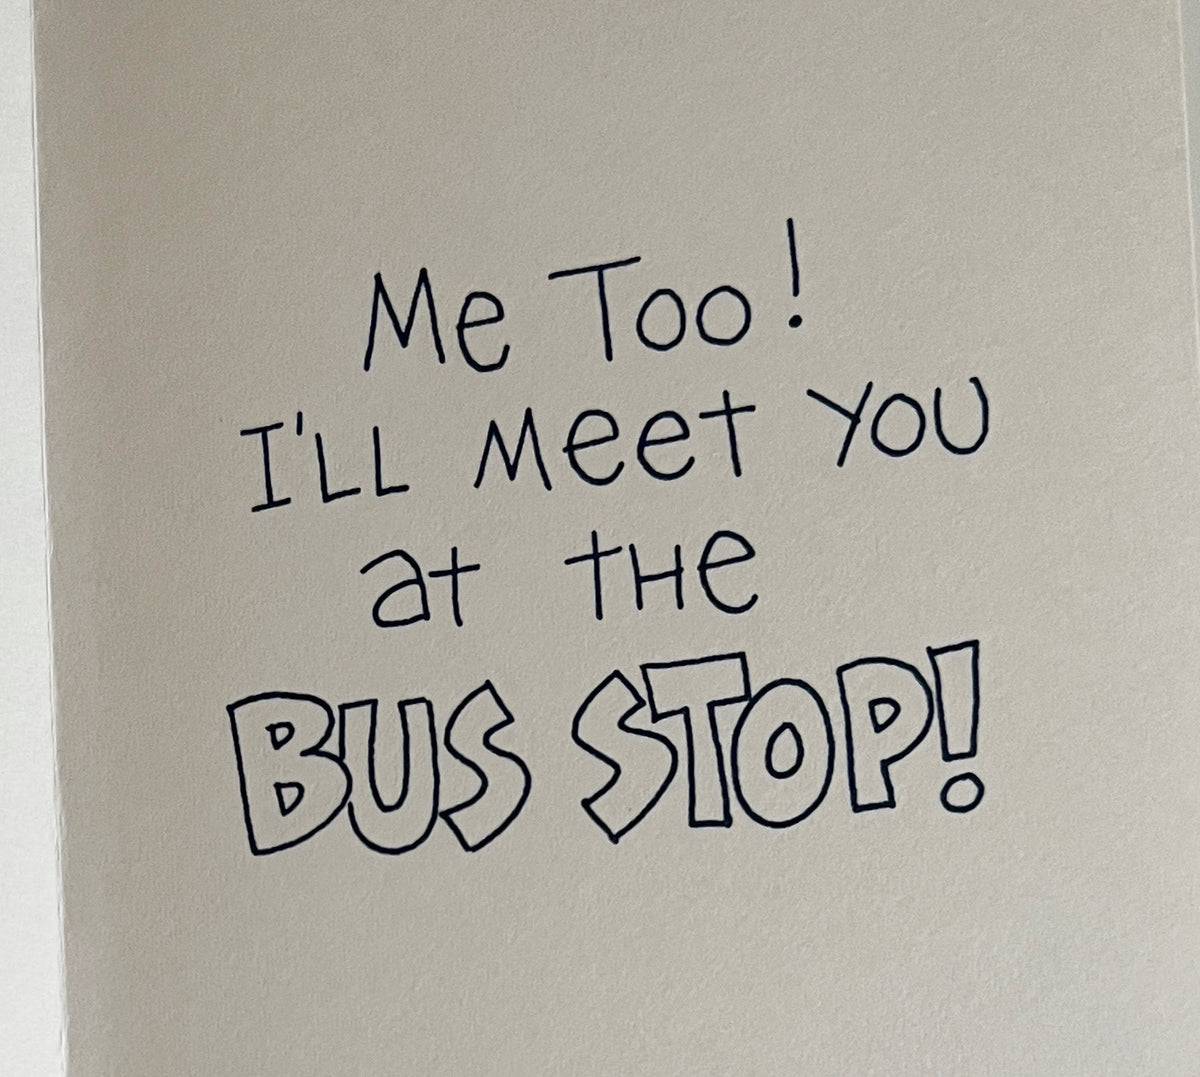 Me Too!
I'LL Meet YOU
at tHe
BUS STOP!